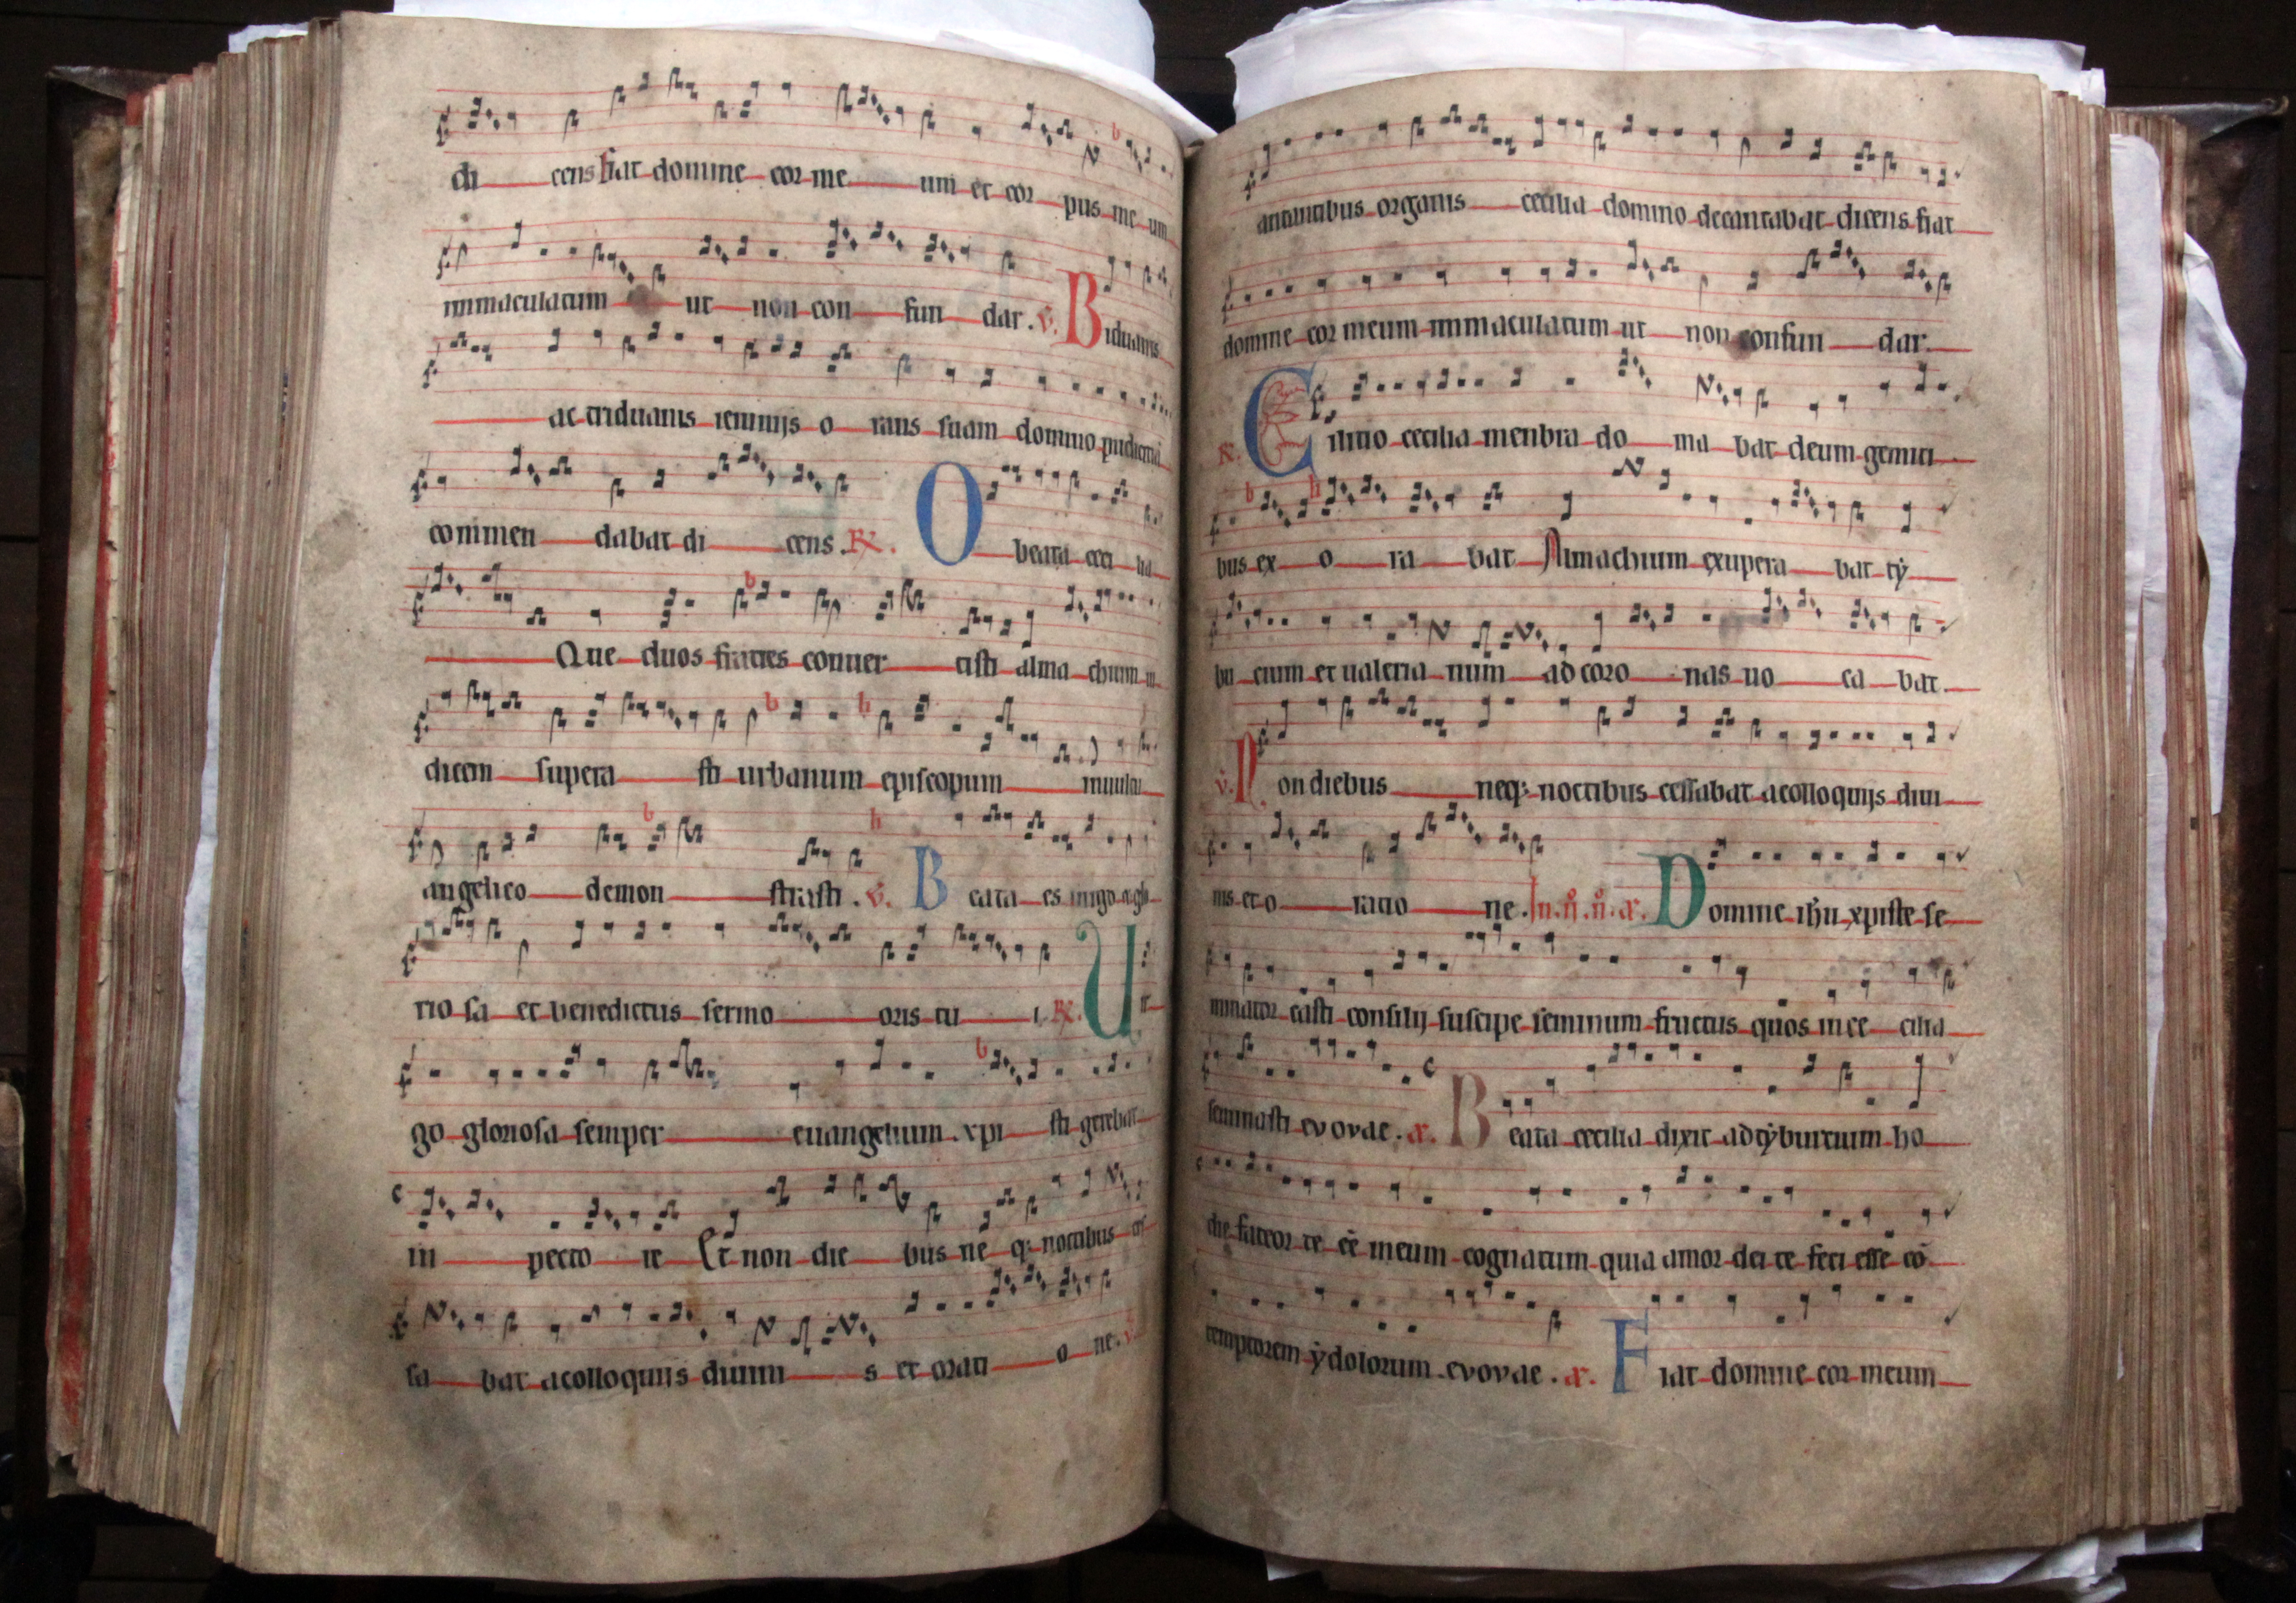 di cens fiat domine cor me um et cor pus me um
immaculatum ut non con fun dar. v. Biduanis
ac triduanis ieiunijs o rans suam domino pudicitiã
commen dabat di cens. R. O beata ceci lia
Que duos fratres conuer tisti alma chium iu
dicem supera sti urbanum episcopum in uultu
angelico demon strasti. v. Beata es uirgo et glo
rio sa et benedictus sermo oris tu i R. Uir
go gloriosa semper euangelium xpi sti gerebat
in pecto re Et non die bus ne q; noctibus ces
sa bat a colloquijs diuini s et orati o ne. v.
antantibus organis cecilia domino decantabat dicens fiat
domine cor meum immaculatum ut non confun dar.
R. Cilitio cecilia menbra do ma bat deum gemiti
bus ex o ra bat Almachium exupera bat ty
bu cium et ualeria num ad coro nas uo ca bat.
v. Non diebus neq; noctibus cessabat a colloquijs diui
nis et o ratio ne. Domine ihu xpiste se
minator casti consilij suscipe seminum fructus quos in ce cilia
seminasti evovae. a. Beata cecilia dixit ad tyburcium ho
die fateor te eē meum cognatum quia amor dei te feci esse cō
temptorem ydolorum evovae. a. Fiat domine cor meum